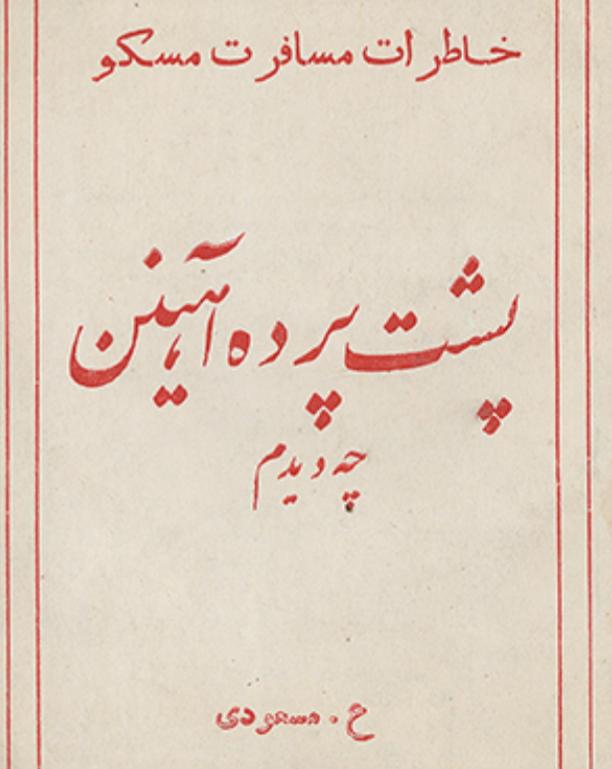 خاطرات مسافرت مسکو
پشت پرده آهنین
چه دیدم
ع . مسعودی